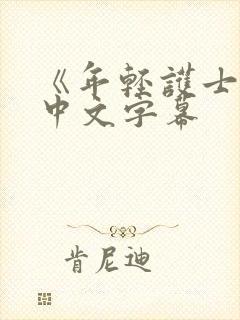 《年轻護士
中文字幕
肯尼迪